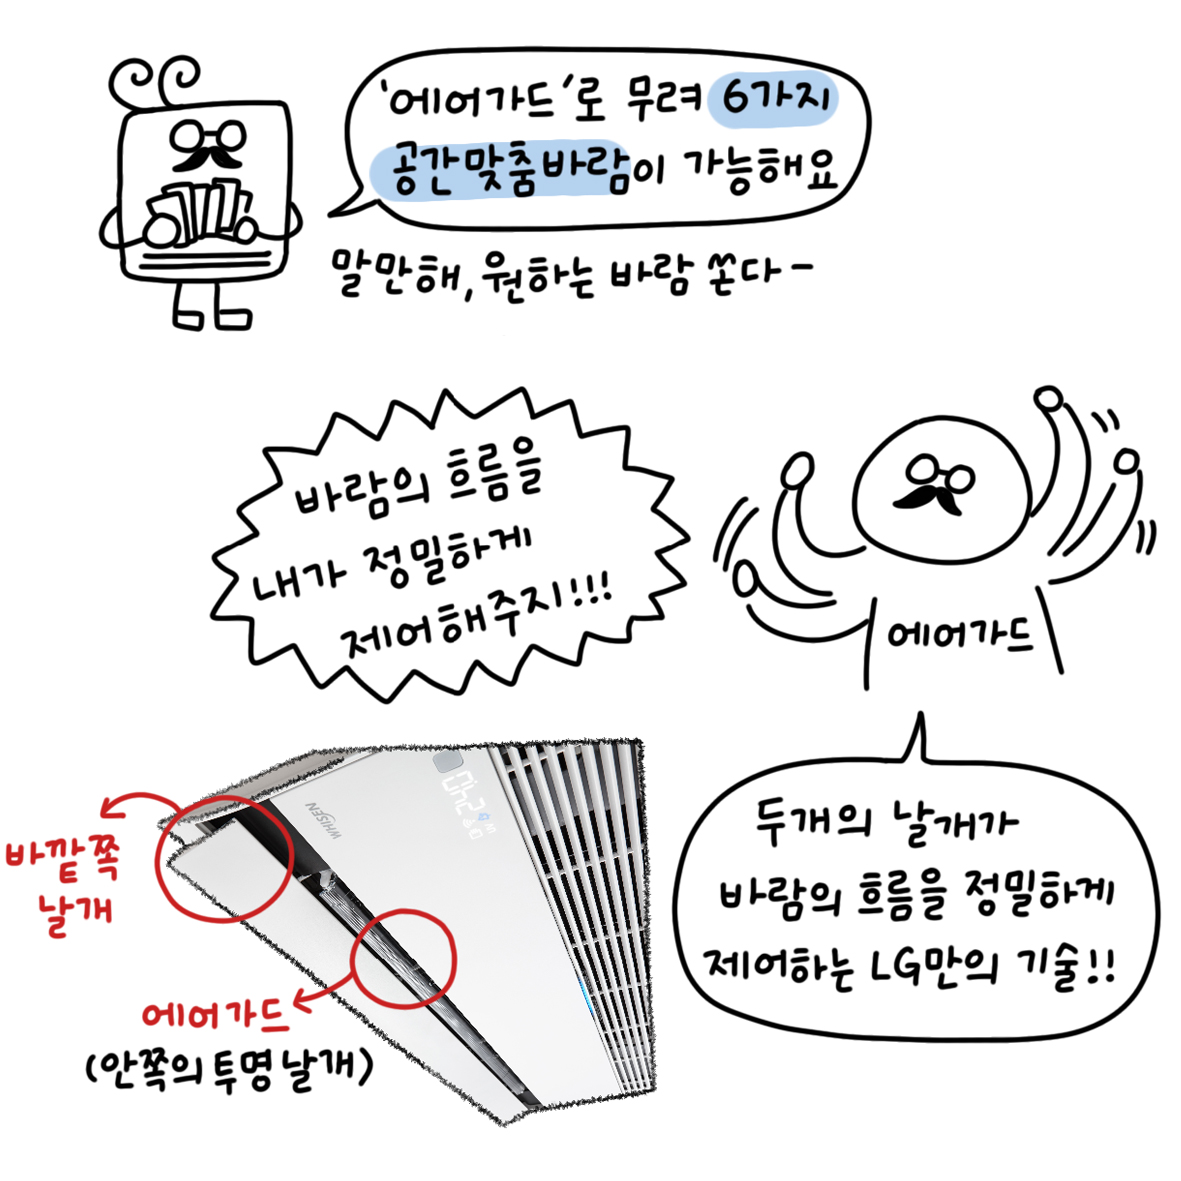 '에어가드'로 무려 6가지
공간맞춤바람이 가능해요
말만해, 원하는 바람 쏜다-
바람의 흐름을
내가 정밀하게
제어해주지!!!
에어가드
바깥쪽
날개
WHISEN
24.0
에어가드
(안쪽의 투명 날개)
두개의 날개가
바람의 흐름을 정밀하게
제어하는 LG만의 기술!!